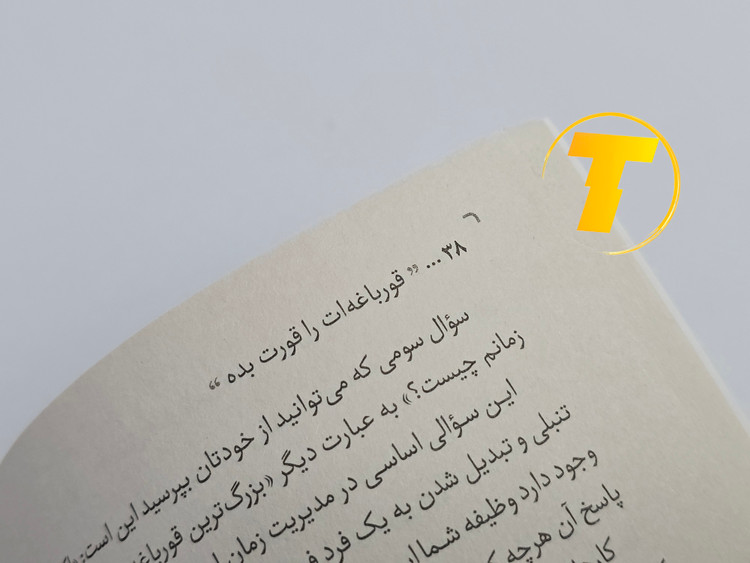 ۳۸ ... ” قورباغه‌ات را قورت بده “
سؤال سومی که می‌توانید از خودتان بپرسید این است:
زمانم چیست؟» به عبارت دیگر «بزرگ‌ترین
این سؤالی اساسی در مدیریت زمان
تنبلی و تبدیل شدن به یک فرد
وجود دارد وظیفه شما
پاسخ آن هرچه
T